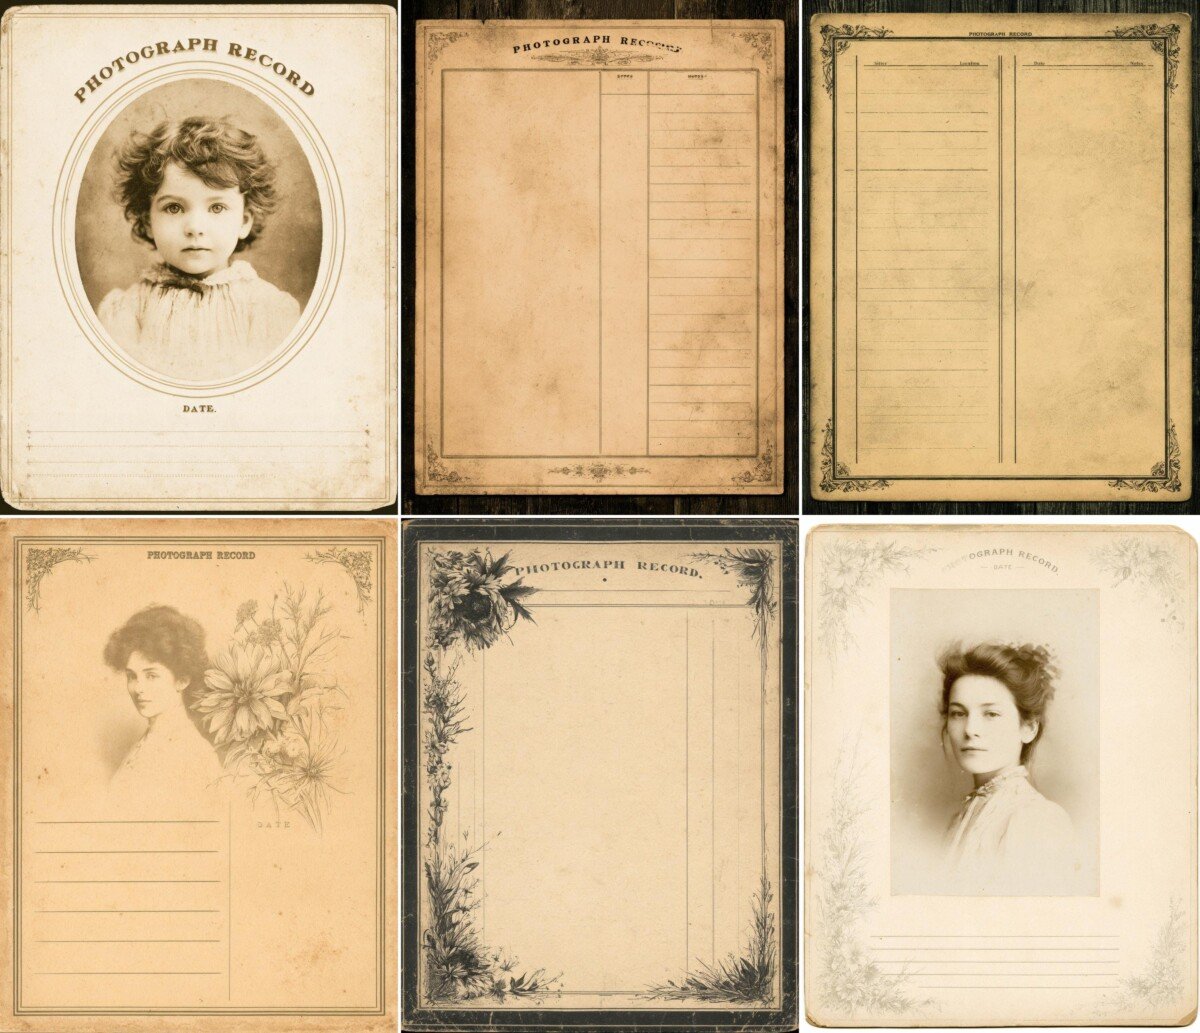 PHOTOGRAPH RECORD
DATE.
PHOTOGRAPH
PHOTOGRAPH RECORD
Location
Date
Notes
PHOTOGRAPH RECORD
DATE
PHOTOGRAPH RECORD.
OGRAPH RECORD
DATE